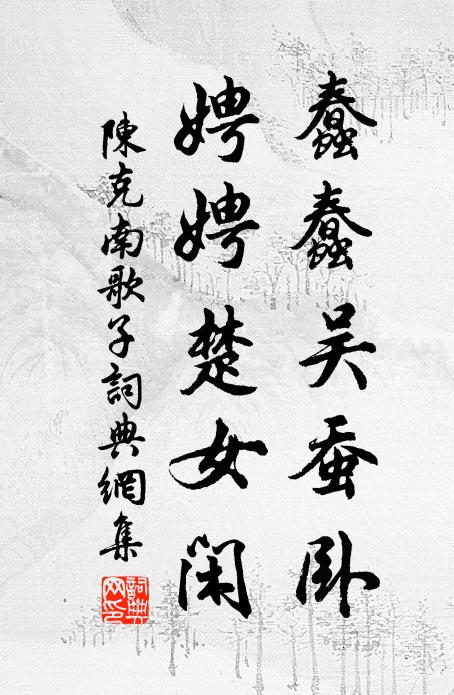 蠢蠢吴蚕卧
娉娉楚女闲
陳克南歌子詞典網集
詞典网印